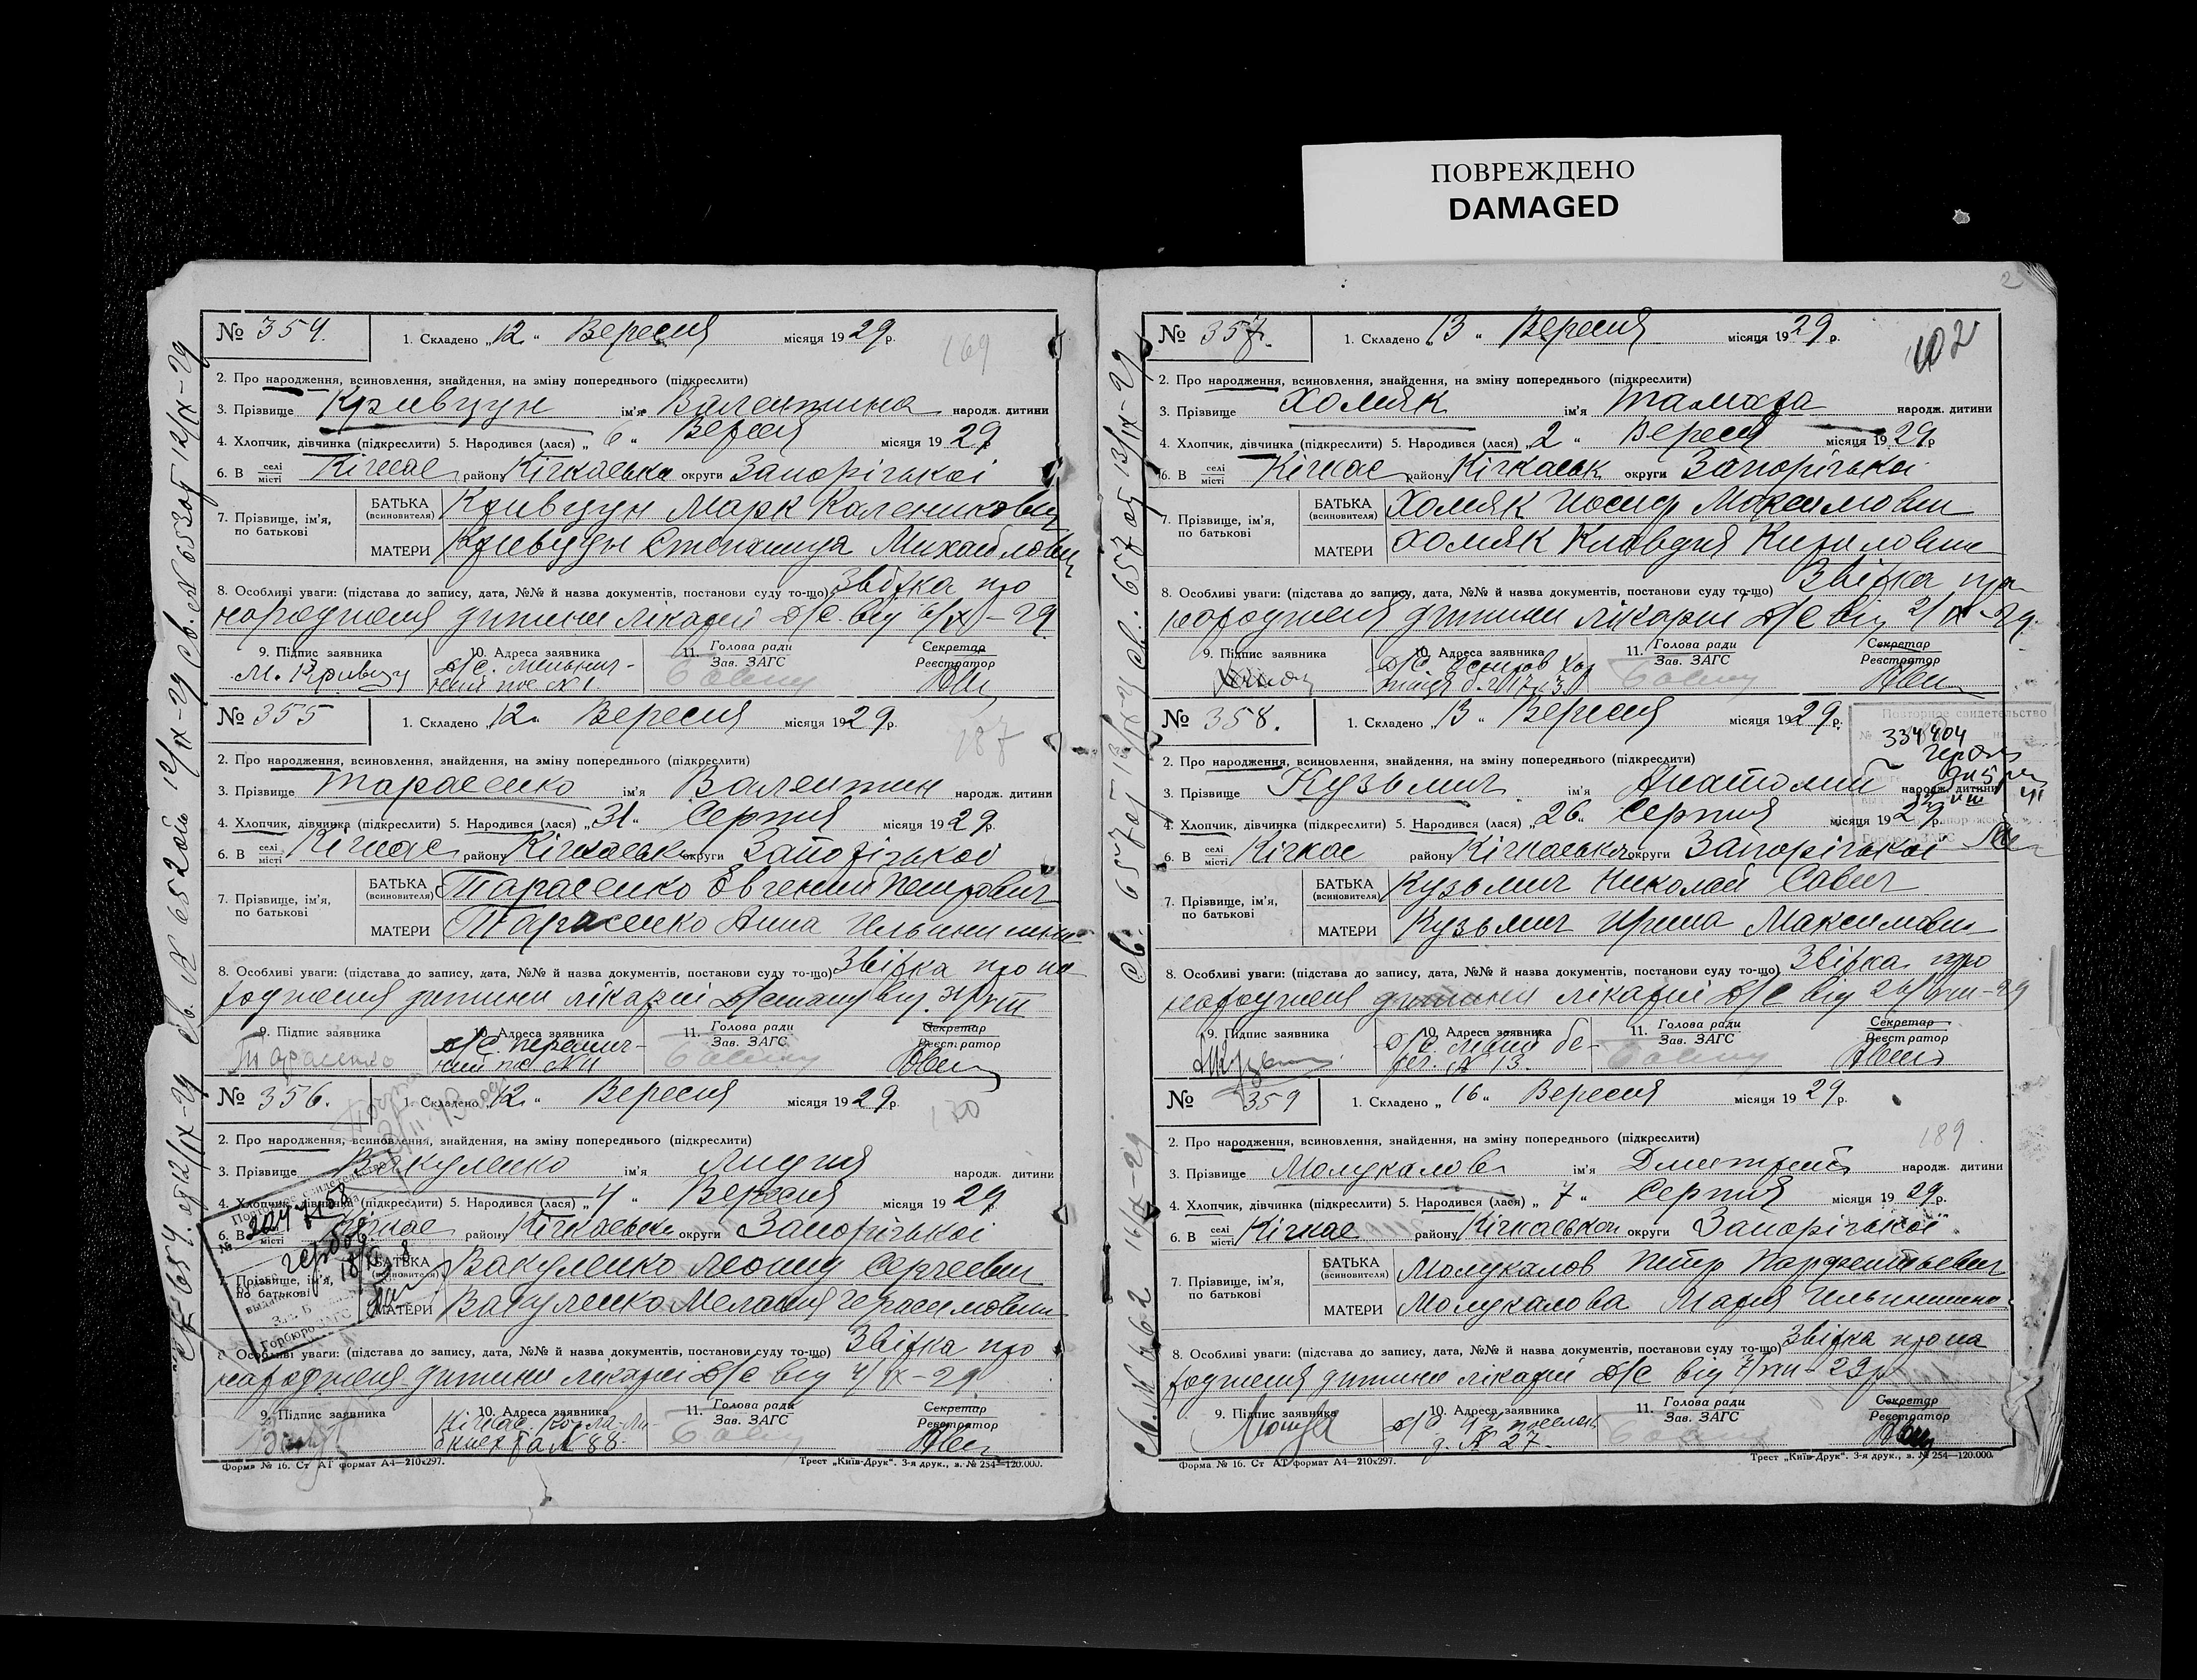 ПОВРЕЖДЕНО
DAMAGED
№ 354. 1. Складено „12“ Вересня місяця 1929р.
169
2. Про народження, всиновлення, знайдення, на зміну попереднього (підкреслити)
3. Прізвище Кривцун ім'я Валентина народж. дитини
4. Хлопчик, дівчинка (підкреслити) 5. Народився (лася) „6“ Вересня місяця 1929р
6. В селі місті Кічкас району Кічкаська округи Запорізької
7. Прізвище, ім'я, по батькові
БАТЬКА (всиновителя) Кривцун Марк Каленикович
МАТЕРИ Кривцун Степанида Михайловна
8. Особливі уваги: (підстава до запису, дата, №№ й назва документів, постанови суду то-що) Звітка про
народження дитини лікарні Д/С. від 6/IX-29
9. Підпис заявника 10. Адреса заявника 11. Голова ради Зав. ЗАГС Секретар Реєстратор
М. Кривцун Д/С. № 1.
№ 355 1. Складено „12“ Вересня місяця 1929р.
187
2. Про народження, всиновлення, знайдення, на зміну попереднього (підкреслити)
3. Прізвище Тарасенко ім'я Валентин народж. дитини
4. Хлопчик, дівчинка (підкреслити) 5. Народився (лася) „31“ Серпня місяця 1929р.
6. В селі місті Кічкас району Кічкаськ округи Запорізької
7. Прізвище, ім'я, по батькові
БАТЬКА (всиновителя) Тарасенко Євгений Петрович
МАТЕРИ Тарасенко Анна Ильинишна
8. Особливі уваги: (підстава до запису, дата, №№ й назва документів, постанови суду то-що) Звітка про на
родження дитини лікарні від 31/VIII
9. Підпис заявника 10. Адреса заявника 11. Голова ради Зав. ЗАГС Секретар Реєстратор
Тарасенко Д/С.
№ 356. 1. Складено „12“ Вересня місяця 1929р.
170
2. Про народження, всиновлення, знайдення, на зміну попереднього (підкреслити)
3. Прізвище Вакуленко ім'я Лидия народж. дитини
4. Хлопчик, дівчинка (підкреслити) 5. Народився (лася) „4“ Вересня місяця 1929р
6. В селі місті Кічкас району Кічкаськ округи Запорізької
7. Прізвище, ім'я, по батькові
БАТЬКА (всиновителя) Вакуленко Леонид Сергеевич
МАТЕРИ Вакуленко Мелания Герасимовна
8. Особливі уваги: (підстава до запису, дата, №№ й назва документів, постанови суду то-що) Звітка про
народження дитини лікарні Д/С від 4/IX-29
9. Підпис заявника 10. Адреса заявника 11. Голова ради Зав. ЗАГС Секретар Реєстратор
Кічкас № 88.
Форма № 16. Ст АТ формат А4—210х297. Трест „Київ-Друк“. 3-я друк., з. № 254—120.000.
св. № 653 от 12/IX-29
св. № 652 от 12/IX-29
св. № 654 от 12/IX-29
№ 357. 1. Складено „13“ Вересня місяця 1929р.
102
2. Про народження, всиновлення, знайдення, на зміну попереднього (підкреслити)
3. Прізвище Хомяк ім'я Тамара народж. дитини
4. Хлопчик, дівчинка (підкреслити) 5. Народився (лася) „2“ Вересня місяця 1929р
6. В селі місті Кічкас району Кічкаськ округи Запорізької
7. Прізвище, ім'я, по батькові
БАТЬКА (всиновителя) Хомяк Иосиф Максимович
МАТЕРИ Хомяк Клавдия Кириловна
8. Особливі уваги: (підстава до запису, дата, №№ й назва документів, постанови суду то-що) Звітка про
народження дитини лікарні Д/С від 2/IX-29.
9. Підпис заявника 10. Адреса заявника 11. Голова ради Зав. ЗАГС Секретар Реєстратор
Д/С. Остров
№ 358. 1. Складено „13“ Вересня місяця 1929р.
Повторное свидетельство
2. Про народження, всиновлення, знайдення, на зміну попереднього (підкреслити)
3. Прізвище Кузьмич ім'я Анатолий народж. дитини
4. Хлопчик, дівчинка (підкреслити) 5. Народився (лася) „26“ Серпня місяця 1929р.
6. В селі місті Кічкас району Кічкаськ округи Запорізької
7. Прізвище, ім'я, по батькові
БАТЬКА (всиновителя) Кузьмич Николай Савич
МАТЕРИ Кузьмич Ирина Максимовна
8. Особливі уваги: (підстава до запису, дата, №№ й назва документів, постанови суду то-що) Звітка про
народження дитини лікарні Д/С від 26/VIII-29
9. Підпис заявника 10. Адреса заявника 11. Голова ради Зав. ЗАГС Секретар Реєстратор
Д/С. Лівий бе-
рег. № 13.
№ 359 1. Складено „16“ Вересня місяця 1929р.
189.
2. Про народження, всиновлення, знайдення, на зміну попереднього (підкреслити)
3. Прізвище Молукалов ім'я Дмитрий народж. дитини
4. Хлопчик, дівчинка (підкреслити) 5. Народився (лася) „7“ Серпня місяця 1929р.
6. В селі місті Кічкас району Кічкаської округи Запорізької
7. Прізвище, ім'я, по батькові
БАТЬКА (всиновителя) Молукалов Петр Парфентьевич
МАТЕРИ Молукалова Мария Ильинишна
8. Особливі уваги: (підстава до запису, дата, №№ й назва документів, постанови суду то-що) Звітка про на
родження дитини лікарні Д/С від 7/VIII-29р
9. Підпис заявника 10. Адреса заявника 11. Голова ради Зав. ЗАГС Секретар Реєстратор
Д/С поселок
д. № 27.
Форма № 16. Ст АТ формат А4—210х297. Трест „Київ-Друк“. 3-я друк., з. № 254—120.000.
св. № 662 16/IX-29